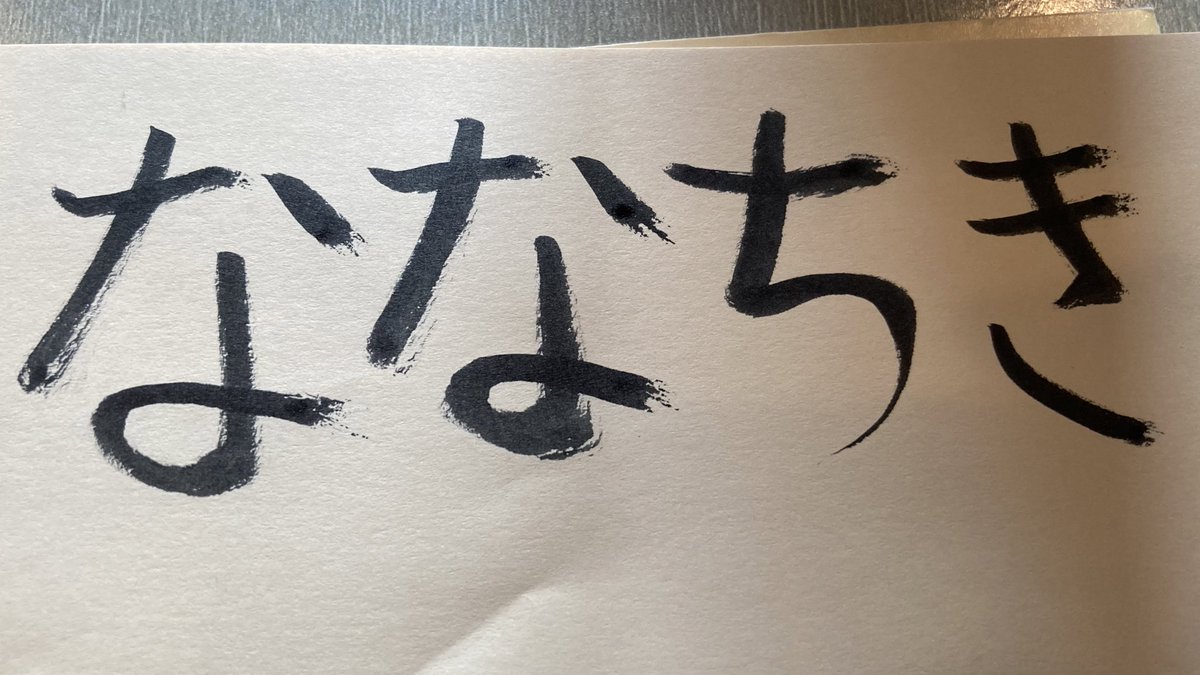 ななちき